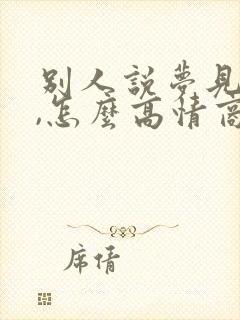 別人說夢見
,怎麼高情商
席倩